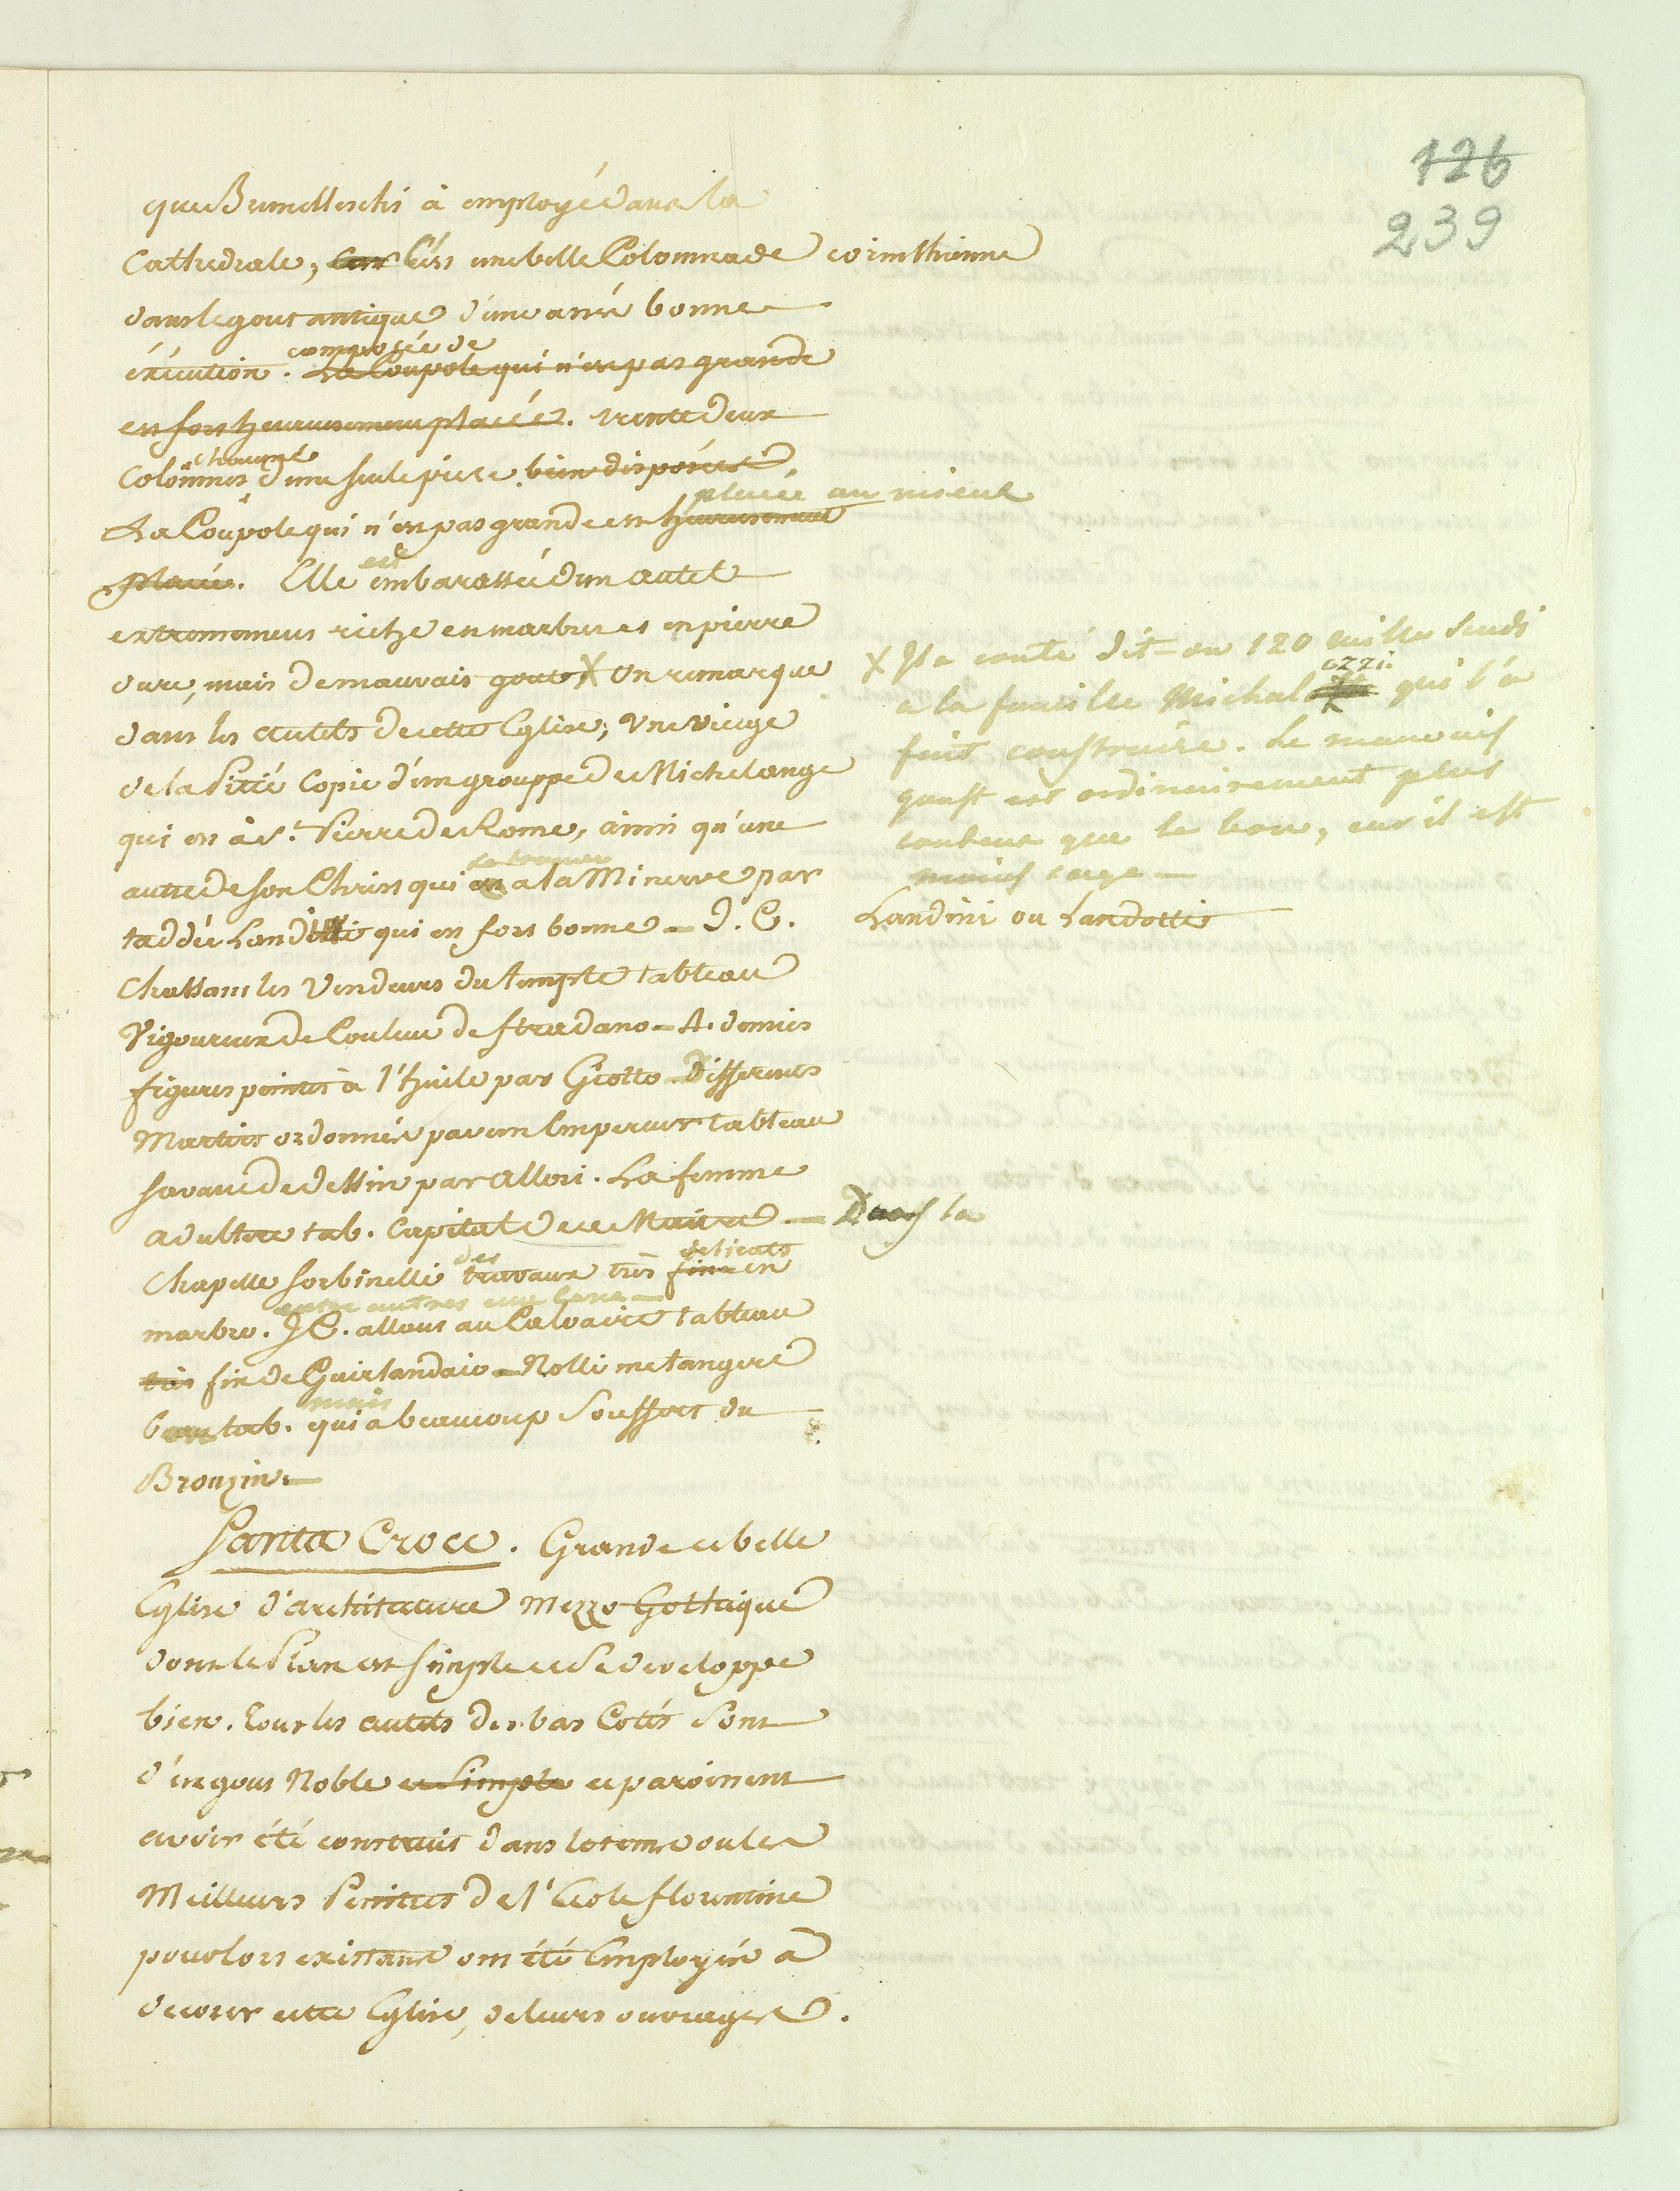 126
239
que Brunelleschi à employé dans la
Cathedrale, Car C'ést une belle Colonnade corinthienne
dans le gout antique d'une assés bonne
composée de
éxécution. La Coupole qui n'est pas grande
est fort heureusement placée. trente deux
chacune
Colonnes d'une seule piece bien disposées.
placée au mieux
La Coupole qui n'est pas grande est heureusement
placée. Elle est embarassée d'un autel
extremement riche en marbres et en pierre
dure, mais de mauvais gout X On remarque
dans les autels de cette Eglise, Une vierge
de la Pitié Copie d'un grouppe de Michelange
qui est à St. Pierre de Rome, ainsi qu'une
se trouve
autre de son Christ qui est a la Minerve par
taddée Landini qui est fort bonne – J. C.
Chassant les Vendeurs du temple tableau
Vigoureux de Couleur de Stradano – 4. demies
figures peintes à l'huile par Giotto – Differents
Martirs ordonnés par un Empereur tableau
savant de dessin par Allori. La femme
adultere tab. Capital de ce Maitre – Dans la
des delicats
Chapelle sorbinelli travaux très fins en
entre autres une
marbre. J C. allant au Calvaire tableau
très fin de Guirlandaio – Nolli me tangere
mais
beau tab. qui a beaucoup Souffert du
Bronzin –
Santa Croce. Grande et belle
Eglise d'architecture Mezzo Gothique
dont le Plan est simple et se developpe
bien. Tous les autels des bas Cotés Sont
d'un gout Noble et Simple et paroissent
avoir été construit dans le tems ou les
Meilleurs Peintres de l'Ecole florentine
pour lors existans ont été Employés à
decorer cette Eglise, de leurs ouvrages.
X Il a couté dit-on 120 mille Scudi
ozzi
a la famille Michel qui l'a
fait construire. Le mauvais
goust est ordinairement plus
couteux que le bon, car il est
moins sage –
Landini ou Landotti